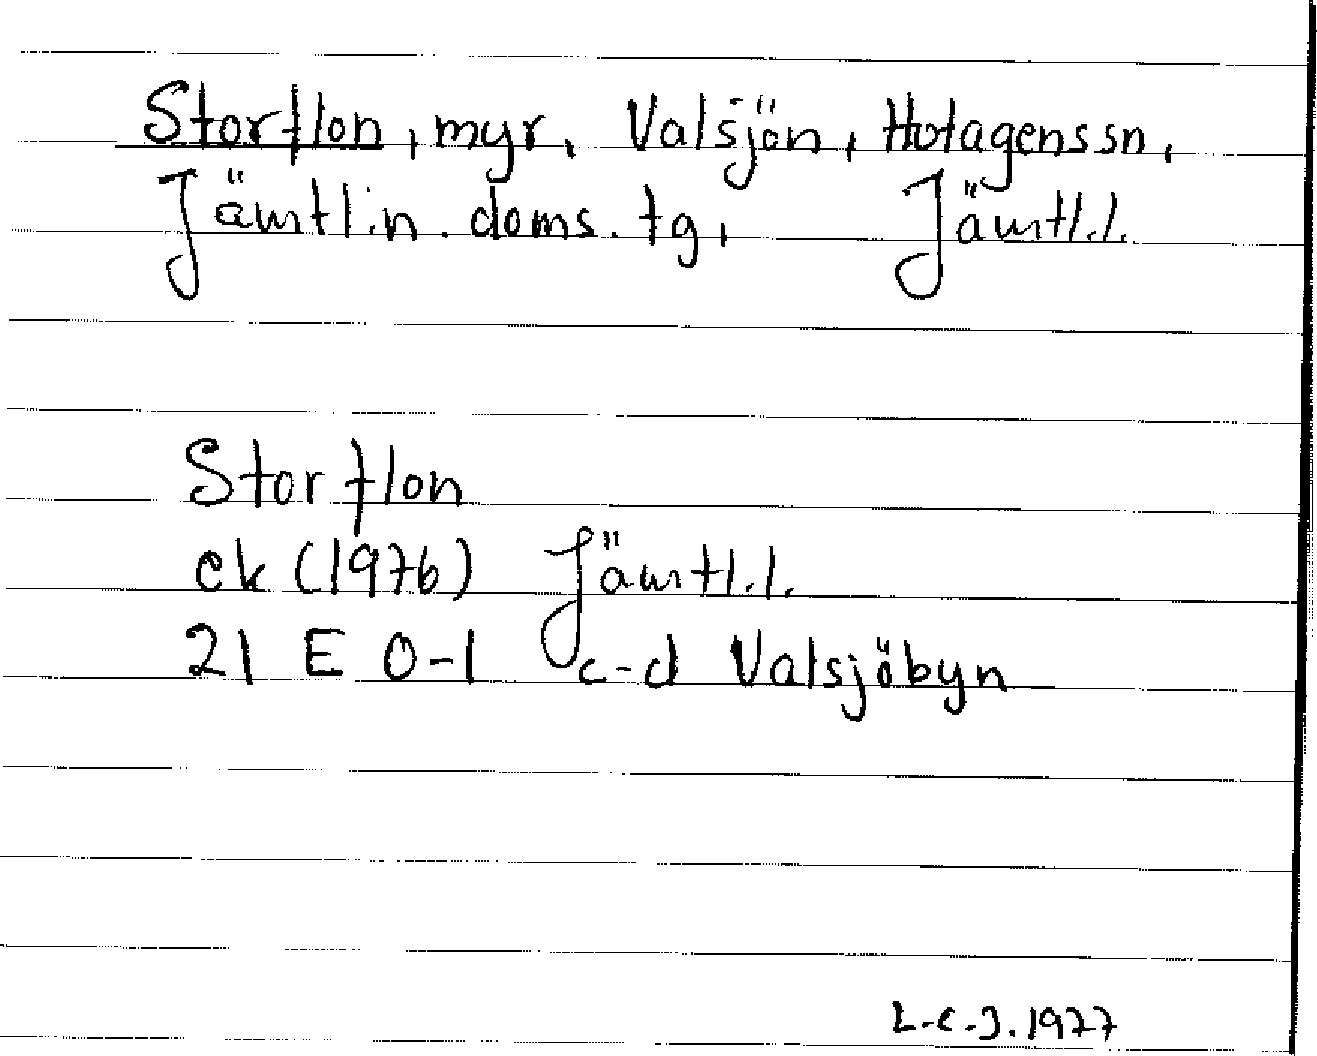 Storflon, myr, Valsjön, Hotagens sn,
Jämtl.n. doms. tg, Jämtl.l.
Storflon
ek (1976) Jämtl.l.
21 E 0-1 c-d Valsjöbyn
L-E-J. 1977